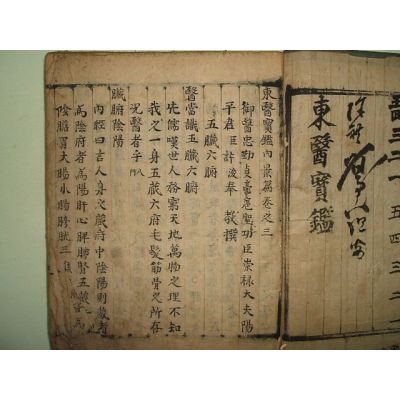 東醫寶鑑
東醫寶鑑內景篇卷之三
御醫忠勤貞亮扈聖功臣崇祿大夫陽
平君臣許浚奉 敎撰
五臟六腑
醫當識五藏六腑
先儒嘆世人務窮天地萬物之理不知
我之一身五藏六府毛髮筋骨之所存
況醫者乎
臟腑陰陽
內經曰言人身之藏府中陰陽則藏者
爲陰府者爲陽肝心脾肺腎五藏皆爲
陰膽胃大腸小腸膀胱三焦